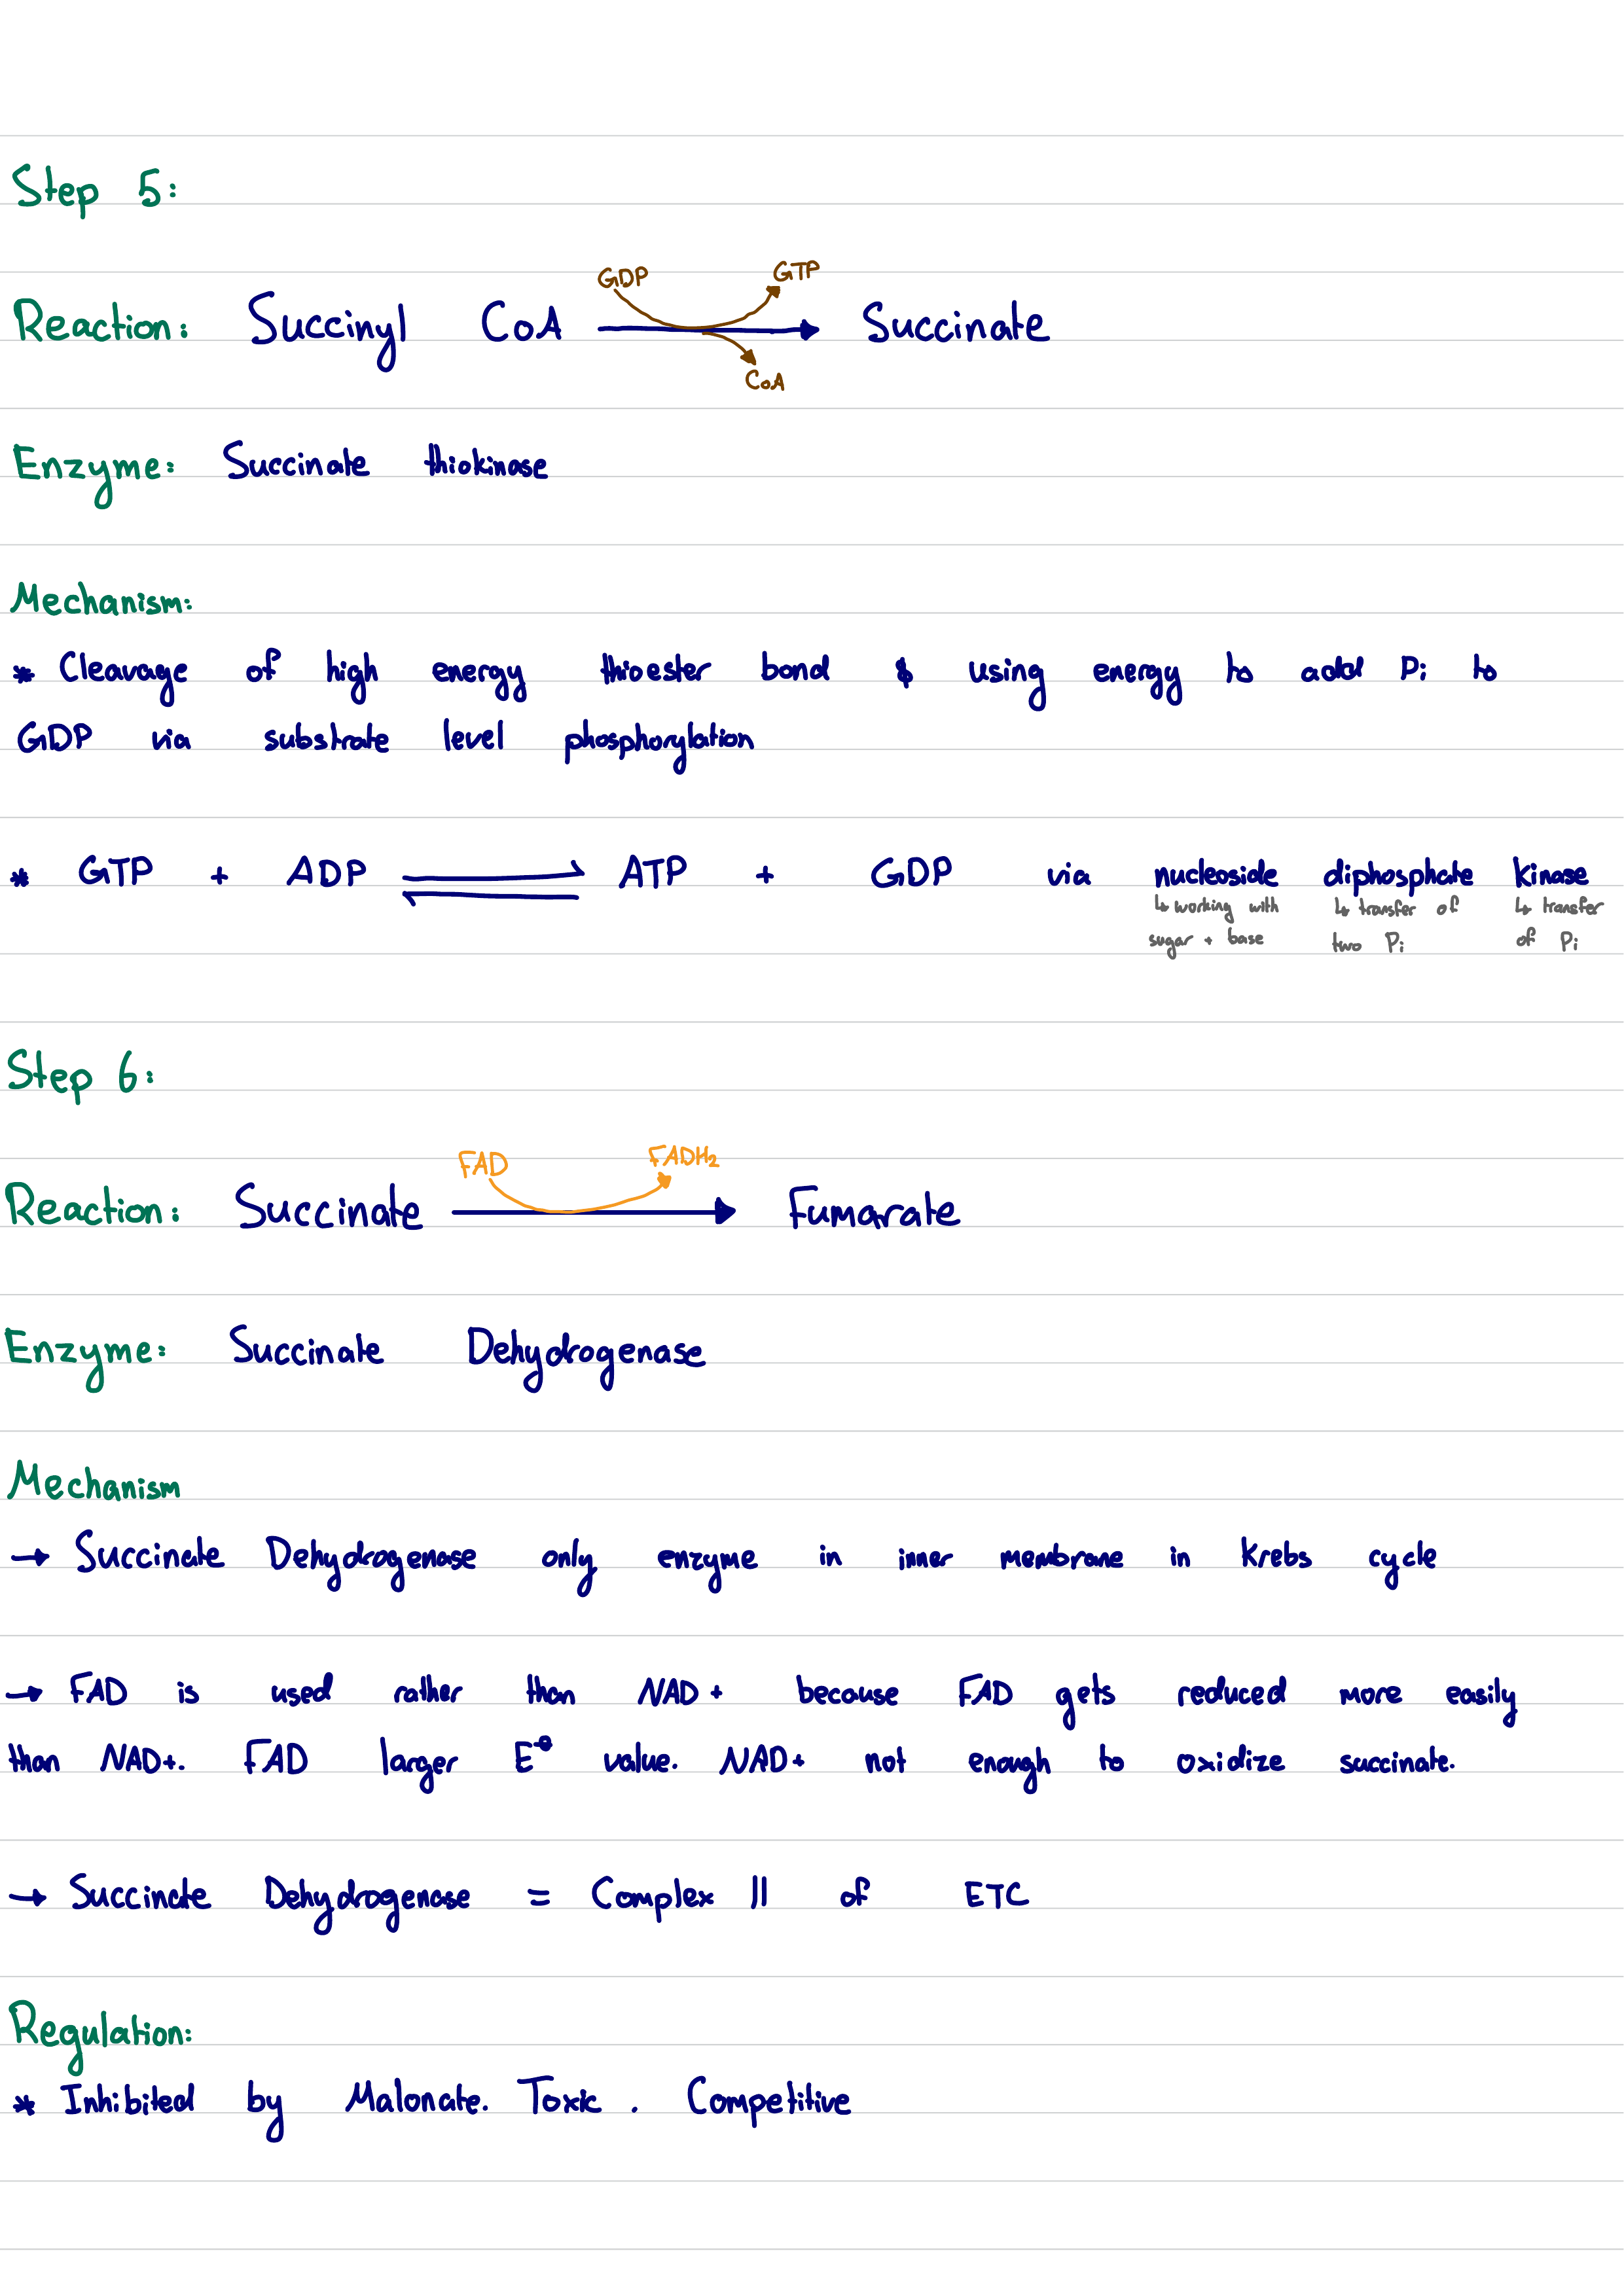 Step 5:
GDP GTP
Reaction: Succinyl CoA → Succinate
CoA
Enzyme: Succinate thiokinase
Mechanism:
* Cleavage of high energy thioester bond & using energy to add Pi to
GDP via substrate level phosphorylation
* GTP + ADP ⇌ ATP + GDP via nucleoside diphosphate kinase
↳ working with ↳ transfer of ↳ transfer
sugar + base two Pi of Pi
Step 6:
FAD FADH₂
Reaction: Succinate → Fumarate
Enzyme: Succinate Dehydrogenase
Mechanism
→ Succinate Dehydrogenase only enzyme in inner membrane in Krebs cycle
→ FAD is used rather than NAD+ because FAD gets reduced more easily
than NAD+. FAD larger E⁰ value. NAD+ not enough to oxidize succinate.
→ Succinate Dehydrogenase = Complex II of ETC
Regulation:
* Inhibited by Malonate. Toxic. Competitive